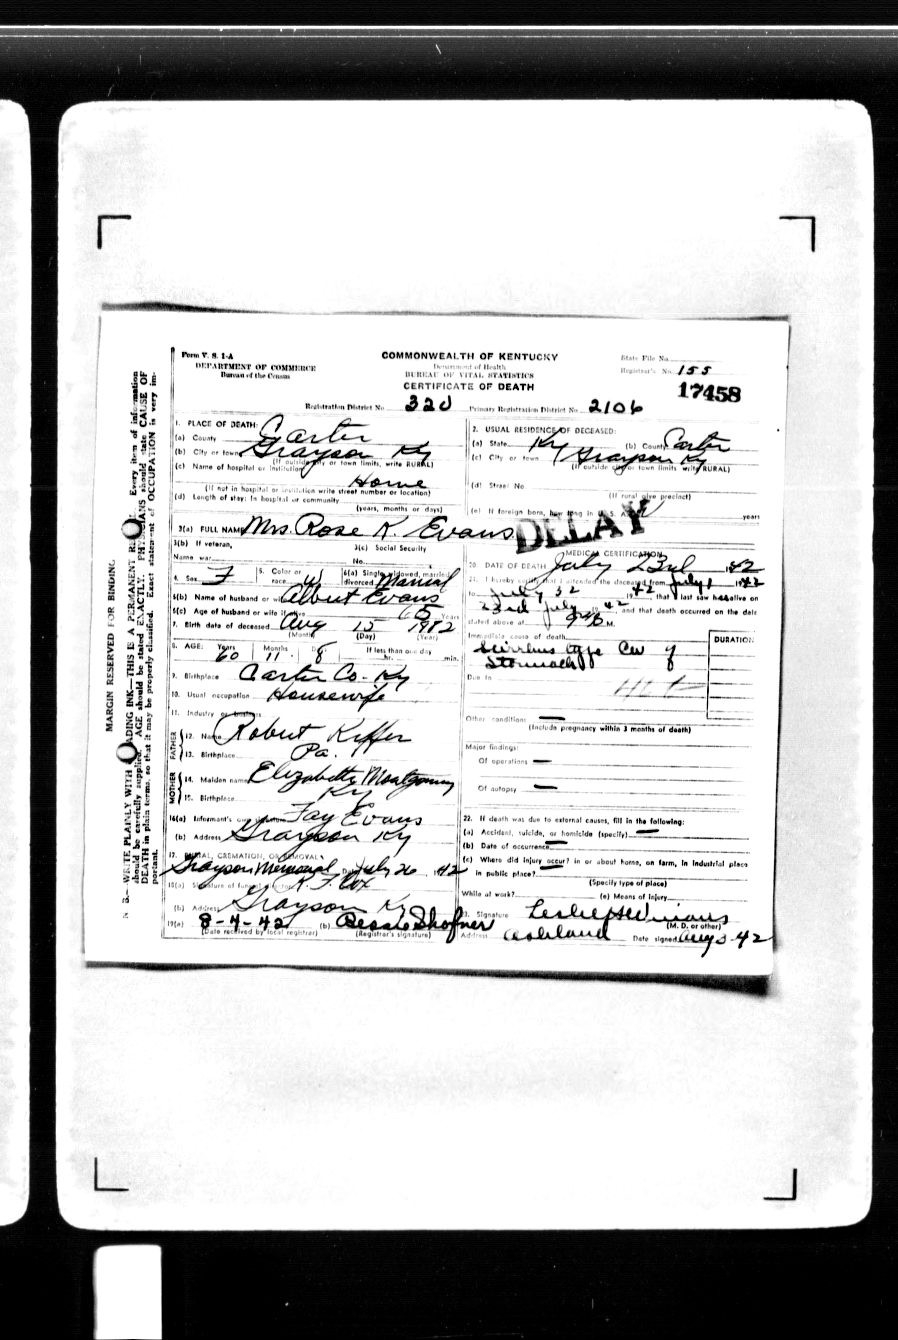 Form V. S. 1-A
DEPARTMENT OF COMMERCE
Bureau of the Census
COMMONWEALTH OF KENTUCKY
Department of Health
BUREAU OF VITAL STATISTICS
CERTIFICATE OF DEATH
State File No.
Registrar's No. 155
17458
Registration District No. 320 Primary Registration District No. 2106
1. PLACE OF DEATH:
(a) County Carter
(b) City or town Grayson Ky
(If outside city or town limits, write RURAL)
(c) Name of hospital or institution
Home
(If not in hospital or institution write street number or location)
(d) Length of stay: In hospital or community
(years, months or days)
2. USUAL RESIDENCE OF DECEASED:
(a) State Ky (b) County Carter
(c) City or town Grayson Ky
(If outside city or town limits, write RURAL)
(d) Street No.
(If rural give precinct)
(e) If foreign born, how long in U. S. A.? years
DELAY
3(a) FULL NAME Mrs. Rose K. Evans
3(b) If veteran,
Name war
3(c) Social Security
No.
4. Sex F 5. Color or race W 6(a) Single, widowed, married, divorced Married
6(b) Name of husband or wife Albert Evans
6(c) Age of husband or wife if alive 65 Years
7. Birth date of deceased Aug 15 1882
(Month) (Day) (Year)
8. AGE: Years Months Days If less than one day
60 11 8 hr. min.
9. Birthplace Carter Co. Ky
10. Usual occupation Housewife
11. Industry or business
FATHER
12. Name Robert Kiffer
13. Birthplace Pa.
MOTHER
14. Maiden name Elizabeth Montgomery
15. Birthplace Ky
16(a) Informant's own signature Fay Evans
(b) Address Grayson Ky
17. BURIAL, CREMATION, OR REMOVAL
Grayson Memorial Date July 26, 1942
18(a) Signature of funeral director K. F. Cox
(b) Address Grayson Ky
19(a) 8-4-42 (b) Bessie Shofner
(Date received by local registrar) (Registrar's signature)
MEDICAL CERTIFICATION
20. DATE OF DEATH July 23rd 1942
21. I hereby certify that I attended the deceased from July 1 1942
to July 1942, that I last saw her alive on
23rd July 1942, and that death occurred on the date
stated above at M.
Immediate cause of death
Scirrhus type Ca of
Stomach
DURATION
Due to
Other conditions —
(Include pregnancy within 3 months of death)
Major findings:
Of operations —
Of autopsy —
22. If death was due to external causes, fill in the following:
(a) Accident, suicide, or homicide (specify) —
(b) Date of occurrence —
(c) Where did injury occur? in or about home, on farm, in industrial place
in public place? —
(Specify type of place)
While at work? (e) Means of injury
23. Signature Leslie H Winans
(M. D. or other)
Address Ashland Date signed Aug 3-42
MARGIN RESERVED FOR BINDING
N. B.—WRITE PLAINLY WITH UNFADING INK—THIS IS A PERMANENT RECORD. Every item of information
should be carefully supplied. AGE should be stated EXACTLY. PHYSICIANS should state CAUSE OF
DEATH in plain terms, so that it may be properly classified. Exact statement of OCCUPATION is very im-
portant.